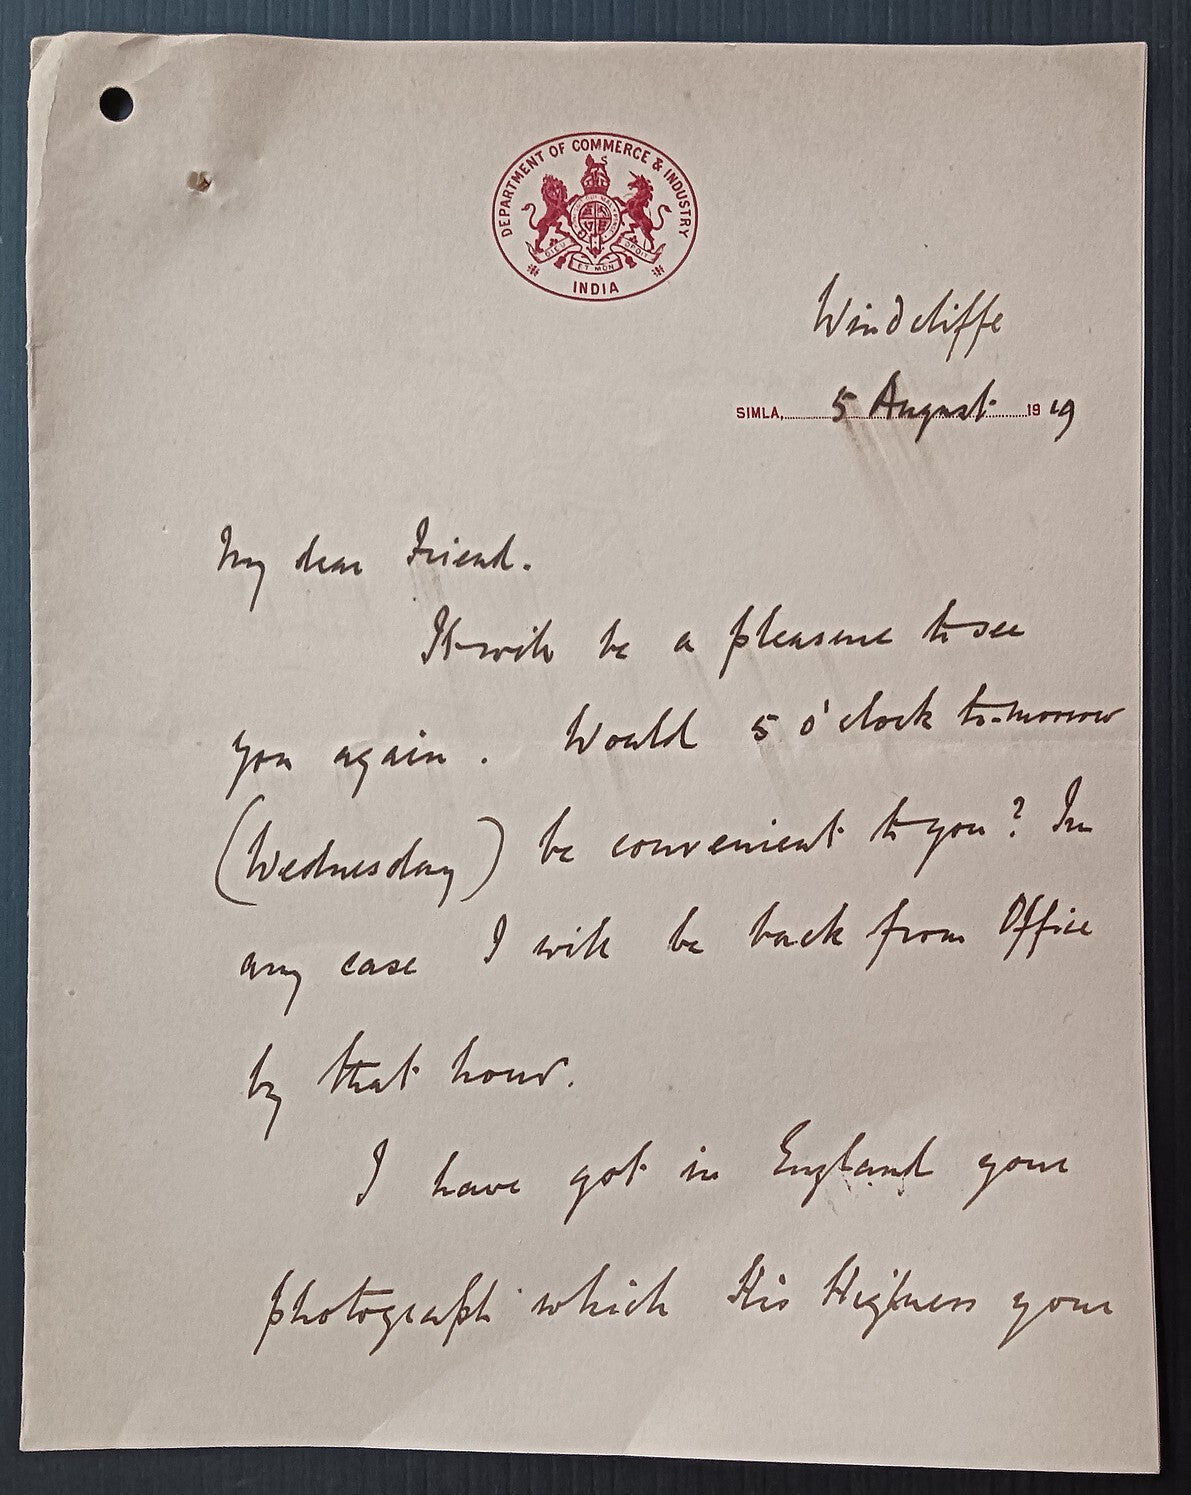 DEPARTMENT OF COMMERCE & INDUSTRY
DIEU ET MON DROIT
INDIA
Windcliffe
SIMLA, 5 August 1919
My dear Friend.
It will be a pleasure to see
you again. Would 5 o'clock to-morrow
(Wednesday) be convenient to you? In
any case I will be back from Office
by that hour.
I have got in England your
photograph which His Highness your